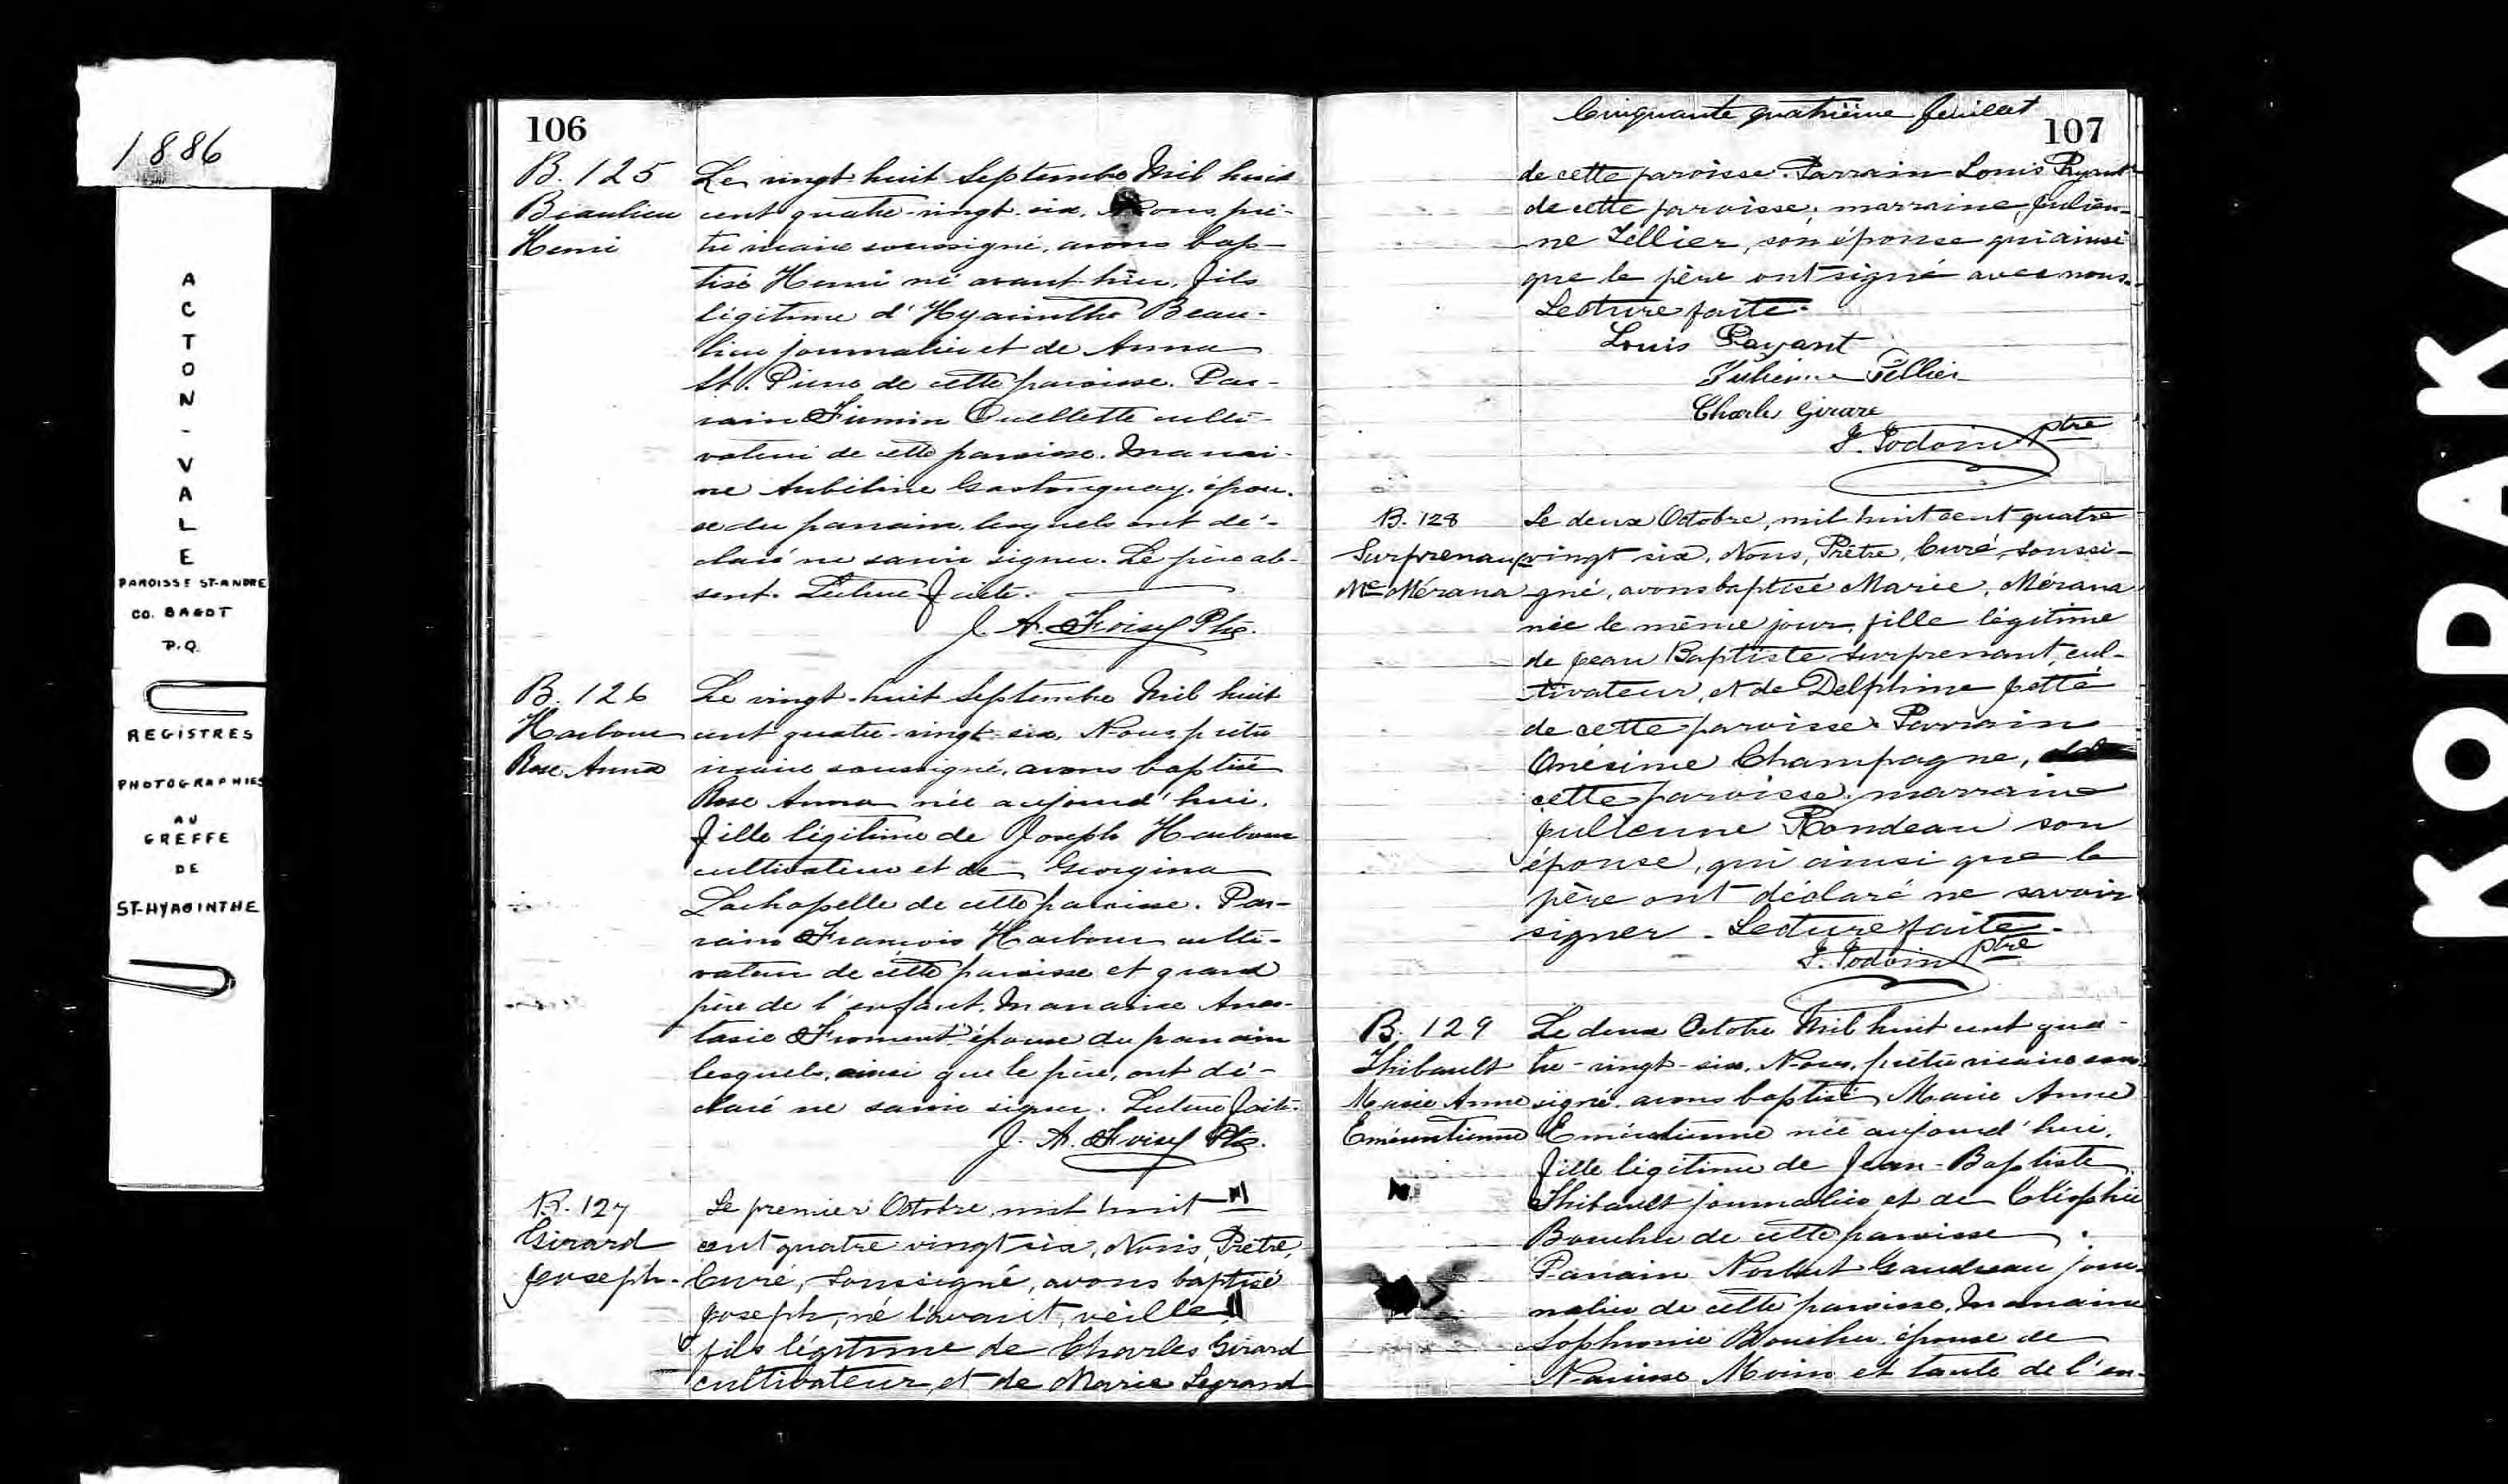 1886
ACTON-VALE
PAROISSE ST-ANDRE
CO. BAGOT
P.Q.
REGISTRES
PHOTOGRAPHIES
AU
GREFFE
DE
ST-HYACINTHE
106
B. 125
Beaulieu
Henri
Le vingt-huit Septembre Mil huit
cent quatre-vingt-six, Nous, prê-
tre vicaire soussigné, avons bap-
tisé Henri né avant-hier, fils
légitime d'Hyacinthe Beau-
lieu journalier et de Anna
St. Pierre de cette paroisse. Par-
rain Firmin Ouellette culti-
vateur de cette paroisse. Marrai-
ne Gastonguay, épou-
se du parrain lesquels ont dé-
claré ne savoir signer. Le père ab-
sent. Lecture faite.
J. A. Foisy Ptre.
B. 126
Harbour
Rose Anna
Le vingt-huit Septembre Mil huit
cent quatre-vingt-six, Nous, prêtre
vicaire soussigné, avons baptisé
Rose Anna née aujourd'hui,
fille légitime de Joseph Harbour
cultivateur et de Georgina
Lachapelle de cette paroisse. Par-
rain François Harbour culti-
vateur de cette paroisse et grand
père de l'enfant. Marraine Anas-
tasie Froment épouse du parrain
lesquels, ainsi que le père, ont dé-
claré ne savoir signer. Lecture faite.
J. A. Foisy Ptre.
B. 127
Girard
Joseph.
Le premier Octobre, mil huit
cent quatre vingt six, Nous, Prêtre,
Curé, soussigné, avons baptisé
Joseph, né l'avant, veille,
fils légitime de Charles Girard
cultivateur, et de Marie Legrand
Cinquante quatrième feuillet
107
de cette paroisse. Parrain Louis Payant
de cette paroisse; marraine, Julien-
ne Tellier, son épouse qui ainsi
que le père ont signé avec nous.
Lecture faite.
Louis Payant
Julienne Tellier
Charles Girare
J. Jodoin ptre
B. 128
Surprenant
Mie Mérana
Le deux Octobre, mil huit cent quatre
vingt six, Nous, Prêtre, Curé, soussi-
gné, avons baptisé Marie, Mérana
née le même jour, fille légitime
de Jean Baptiste Surprenant, cul-
tivateur, et de Delphine Jetté
de cette paroisse. Parrain
Onésime Champagne, de
cette paroisse; marraine
Julienne Rondeau son
épouse, qui ainsi que le
père ont déclaré ne savoir
signer. Lecture faite.
J. Jodoin ptre
B. 129
Thibault
Marie Anne
Emérentienne
Le deux Octobre Mil huit cent qua-
tre-vingt-six, Nous, prêtre vicaire sous-
signé, avons baptisé Marie Anne
Emérentienne née aujourd'hui,
fille légitime de Jean-Baptiste
Thibault journalier et de Cléophée
Boucher de cette paroisse.
Parrain Norbert Gaudreau jour-
nalier de cette paroisse. Marraine
Sophronie Boucher épouse de
Narcisse Morin et tante de l'en-
KODAK